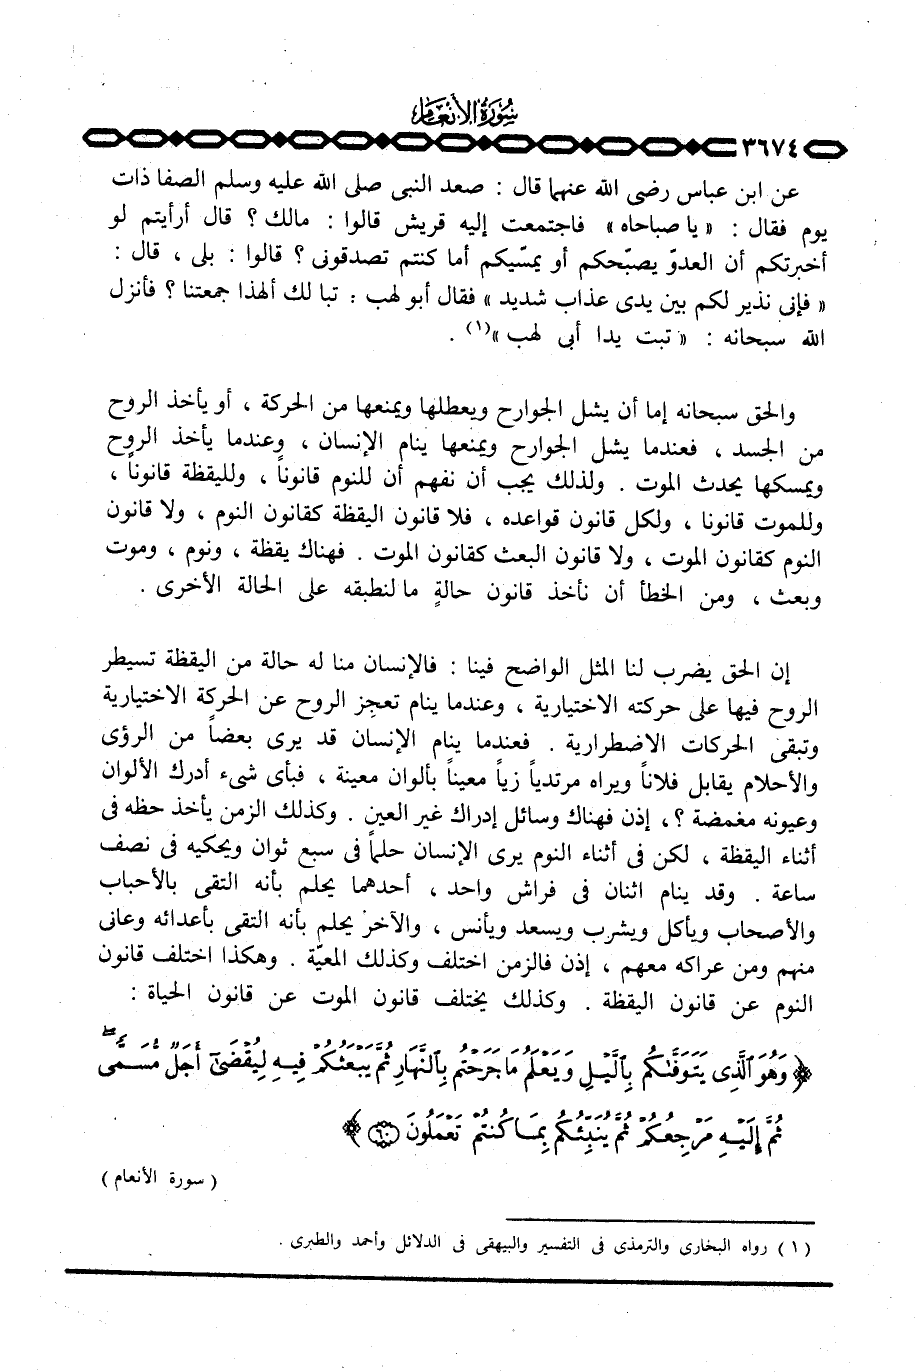 سورة الأنعام
٣٦٧٤
عن ابن عباس رضى الله عنهما قال : صعد النبى صلى الله عليه وسلم الصفا ذات
يوم فقال : « يا صباحاه » فاجتمعت إليه قريش قالوا : مالك ؟ قال أرأيتم لو
أخبرتكم أن العدوّ يصبّحكم أو يمسّيكم أما كنتم تصدقونى ؟ قالوا : بلى ، قال :
« فإنى نذير لكم بين يدى عذاب شديد » فقال أبو لهب : تبا لك ألهذا جمعتنا ؟ فأنزل
الله سبحانه : « تبت يدا أبى لهب »(١) .
والحق سبحانه إما أن يشل الجوارح ويعطلها ويمنعها من الحركة ، أو يأخذ الروح
من الجسد ، فعندما يشل الجوارح ويمنعها ينام الإنسان ، وعندما يأخذ الروح
ويمسكها يحدث الموت . ولذلك يجب أن نفهم أن للنوم قانوناً ، ولليقظة قانوناً ،
وللموت قانونا ، ولكل قانون قواعده ، فلا قانون اليقظة كقانون النوم ، ولا قانون
النوم كقانون الموت ، ولا قانون البعث كقانون الموت . فهناك يقظة ، ونوم ، وموت
وبعث ، ومن الخطأ أن نأخذ قانون حالةٍ ما لنطبقه على الحالة الأخرى .
إن الحق يضرب لنا المثل الواضح فينا : فالإنسان منا له حالة من اليقظة تسيطر
الروح فيها على حركته الاختيارية ، وعندما ينام تعجز الروح عن الحركة الاختيارية
وتبقى الحركات الاضطرارية . فعندما ينام الإنسان قد يرى بعضاً من الرؤى
والأحلام يقابل فلاناً ويراه مرتدياً زياً معيناً بألوان معينة ، فبأى شىء أدرك الألوان
وعيونه مغمضة ؟، إذن فهناك وسائل إدراك غير العين . وكذلك الزمن يأخذ حظه فى
أثناء اليقظة ، لكن فى أثناء النوم يرى الإنسان حلماً فى سبع ثوان ويحكيه فى نصف
ساعة . وقد ينام اثنان فى فراش واحد ، أحدهما يحلم بأنه التقى بالأحباب
والأصحاب ويأكل ويشرب ويسعد ويأنس ، والآخر يحلم بأنه التقى بأعدائه وعانى
منهم ومن عراكه معهم ، إذن فالزمن اختلف وكذلك المعيّة . وهكذا اختلف قانون
النوم عن قانون اليقظة . وكذلك يختلف قانون الموت عن قانون الحياة :
﴿ وَهُوَ ٱلَّذِى يَتَوَفَّىٰكُم بِٱلَّيْلِ وَيَعْلَمُ مَا جَرَحْتُم بِٱلنَّهَارِ ثُمَّ يَبْعَثُكُمْ فِيهِ لِيُقْضَىٰٓ أَجَلٌ مُّسَمًّى
ثُمَّ إِلَيْهِ مَرْجِعُكُمْ ثُمَّ يُنَبِّئُكُم بِمَا كُنتُمْ تَعْمَلُونَ ٦٠ ﴾
( سورة الأنعام )
( ١ ) رواه البخارى والترمذى فى التفسير والبيهقى فى الدلائل وأحمد والطبرى .